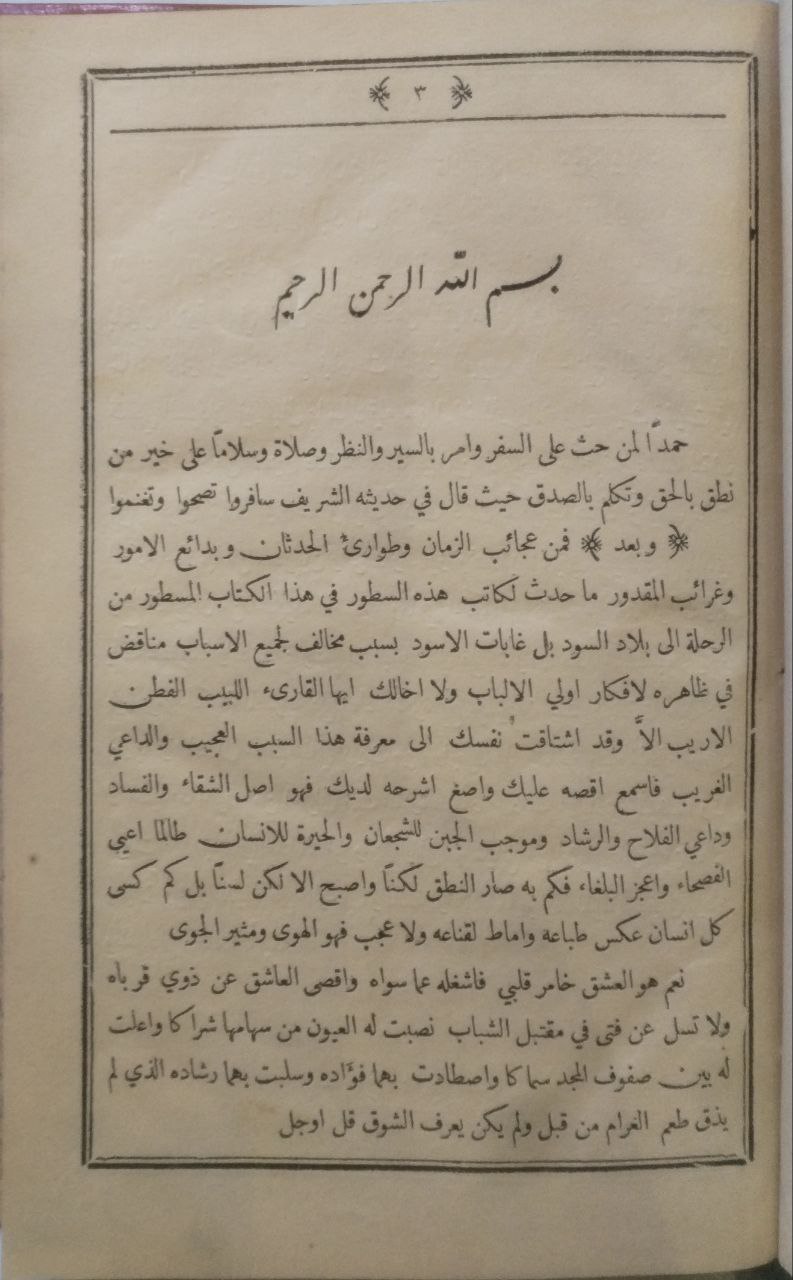 ٣
بسم الله الرحمن الرحيم
حمدًا لمن حث على السفر وامر بالسير والنظر وصلاة وسلامًا على خير من
نطق بالحق وتكلم بالصدق حيث قال في حديثه الشريف سافروا تصحوا وتغنموا
﴿ وبعد ﴾ فمن عجائب الزمان وطوارئ الحدثان وبدائع الامور
وغرائب المقدور ما حدث لكاتب هذه السطور في هذا الكتاب المسطور من
الرحلة الى بلاد السود بل غابات الاسود بسبب مخالف لجميع الاسباب مناقض
في ظاهره لافكار اولي الالباب ولا اخالك ايها القارىء اللبيب الفطن
الاريب الاَّ وقد اشتاقت نفسك الى معرفة هذا السبب العجيب والداعي
الغريب فاسمع اقصه عليك واصغ اشرحه لديك فهو اصل الشقاء والفساد
وداعي الفلاح والرشاد وموجب الجبن للشجعان والحيرة للانسان طالما اعيى
الفصحاء واعجز البلغاء فكم به صار النطق لكنًا واصبح الالكن لسنًا بل كم كسى
كل انسان عكس طباعه واماط لقناعه ولا عجب فهو الهوى ومثير الجوى
نعم هو العشق خامر قلبي فاشغله عما سواه واقصى العاشق عن ذوي قرباه
ولا تسل عن فتى في مقتبل الشباب نصبت له العيون من سهامها شراكا واعلت
له بين صفوف المجد سماكا واصطادت بهما فؤاده وسلبت بهما رشاده الذي لم
يذق طعم الغرام من قبل ولم يكن يعرف الشوق قل اوجل